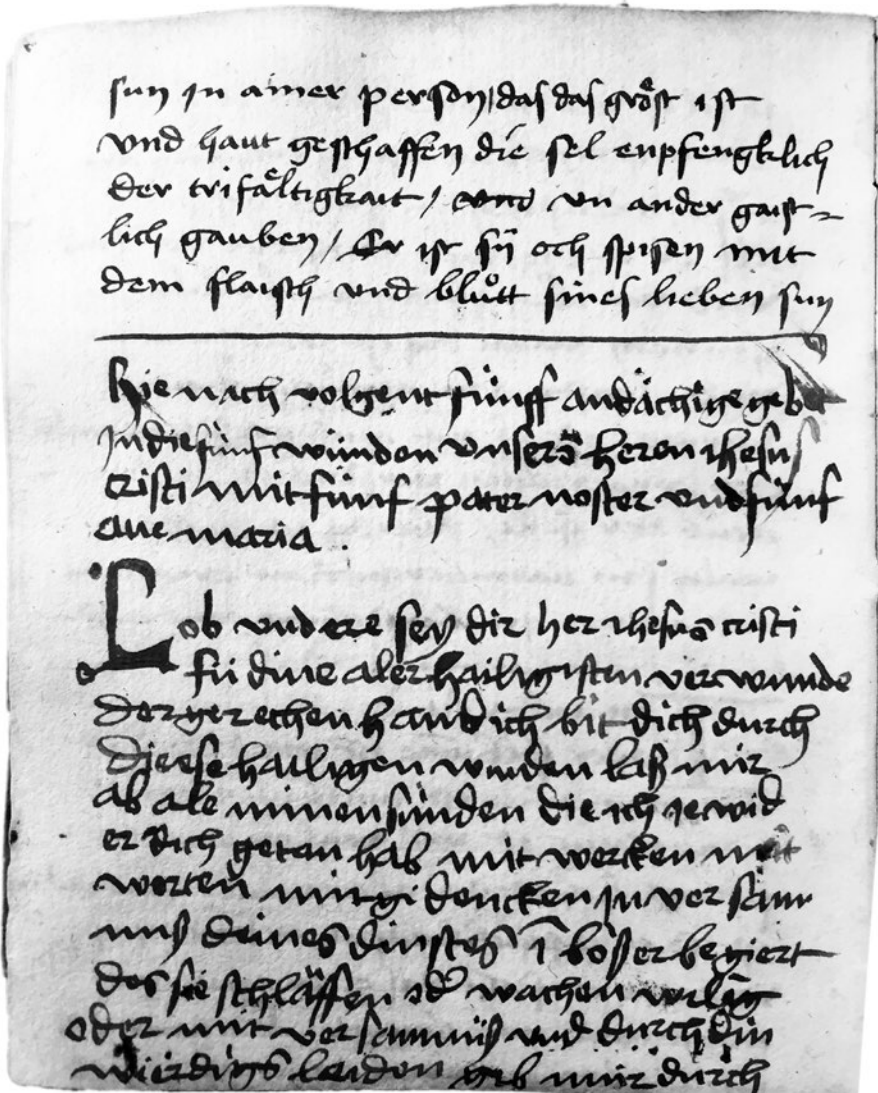 sun in ainer person / das das gröst ist
vnd haut geschaffen die sel enpfengklich
der trifältigkait / vnd vn ander gaist-
lich gauben / Er ist sÿ och spisen mit
dem flaisch vnd blůtt sines lieben sun
Hie nach volgent fünff andächige gebet
In die fünf wunden vnsers heren ihesus
cristi mit fünf pater noster vnd fünf
aue maria
Lob vnd ere seÿ dir her ihesus cristi
fü dine aler hailigisten verwunde
der gerechen hand ich bit dich durch
die ese hailigen wunden laß mir
ab ale minen sünden die ich ie wid
er dich geten hab mit wercken mit
worten mit gidencken in versaum
nuß deines dinstes î bößer begiert
des sie schläffen od wachen
oder mit versaumnüß vnd durch din
wierdigs leiden gib mir durch